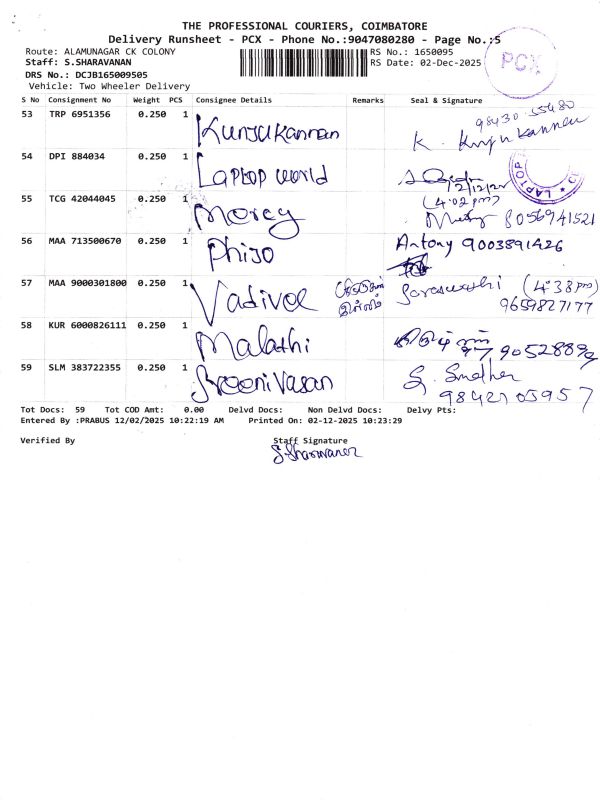 THE PROFESSIONAL COURIERS, COIMBATORE
Delivery Runsheet - PCX - Phone No.:9047080280 - Page No.:5
Route: ALAMUNAGAR CK COLONY RS No.: 1650095
Staff: S.SHARAVANAN RS Date: 02-Dec-2025
DRS No.: DCJB165009505
Vehicle: Two Wheeler Delivery
PCX
S No Consignment No Weight PCS Consignee Details Remarks Seal & Signature
53 TRP 6951356 0.250 1 Kunjukannan 98430 55480
K. Kunjukannan
54 DPI 884034 0.250 1 Laptop world 2/12/25
LAPTOP
55 TCG 42044045 0.250 1 Morcy (4:02 pm)
8056941521
56 MAA 713500670 0.250 1 Phijo Antony 9003891426
57 MAA 9000301800 0.250 1 Vadivel இல்லம் Saraswathi (4:38 pm)
9659827177
58 KUR 6000826111 0.250 1 Malathi
59 SLM 383722355 0.250 1 Sreenivasan
9842705957
Tot Docs: 59 Tot COD Amt: 0.00 Delvd Docs: Non Delvd Docs: Delvy Pts:
Entered By :PRABUS 12/02/2025 10:22:19 AM Printed On: 02-12-2025 10:23:29
Verified By Staff Signature
S.Sharavanan